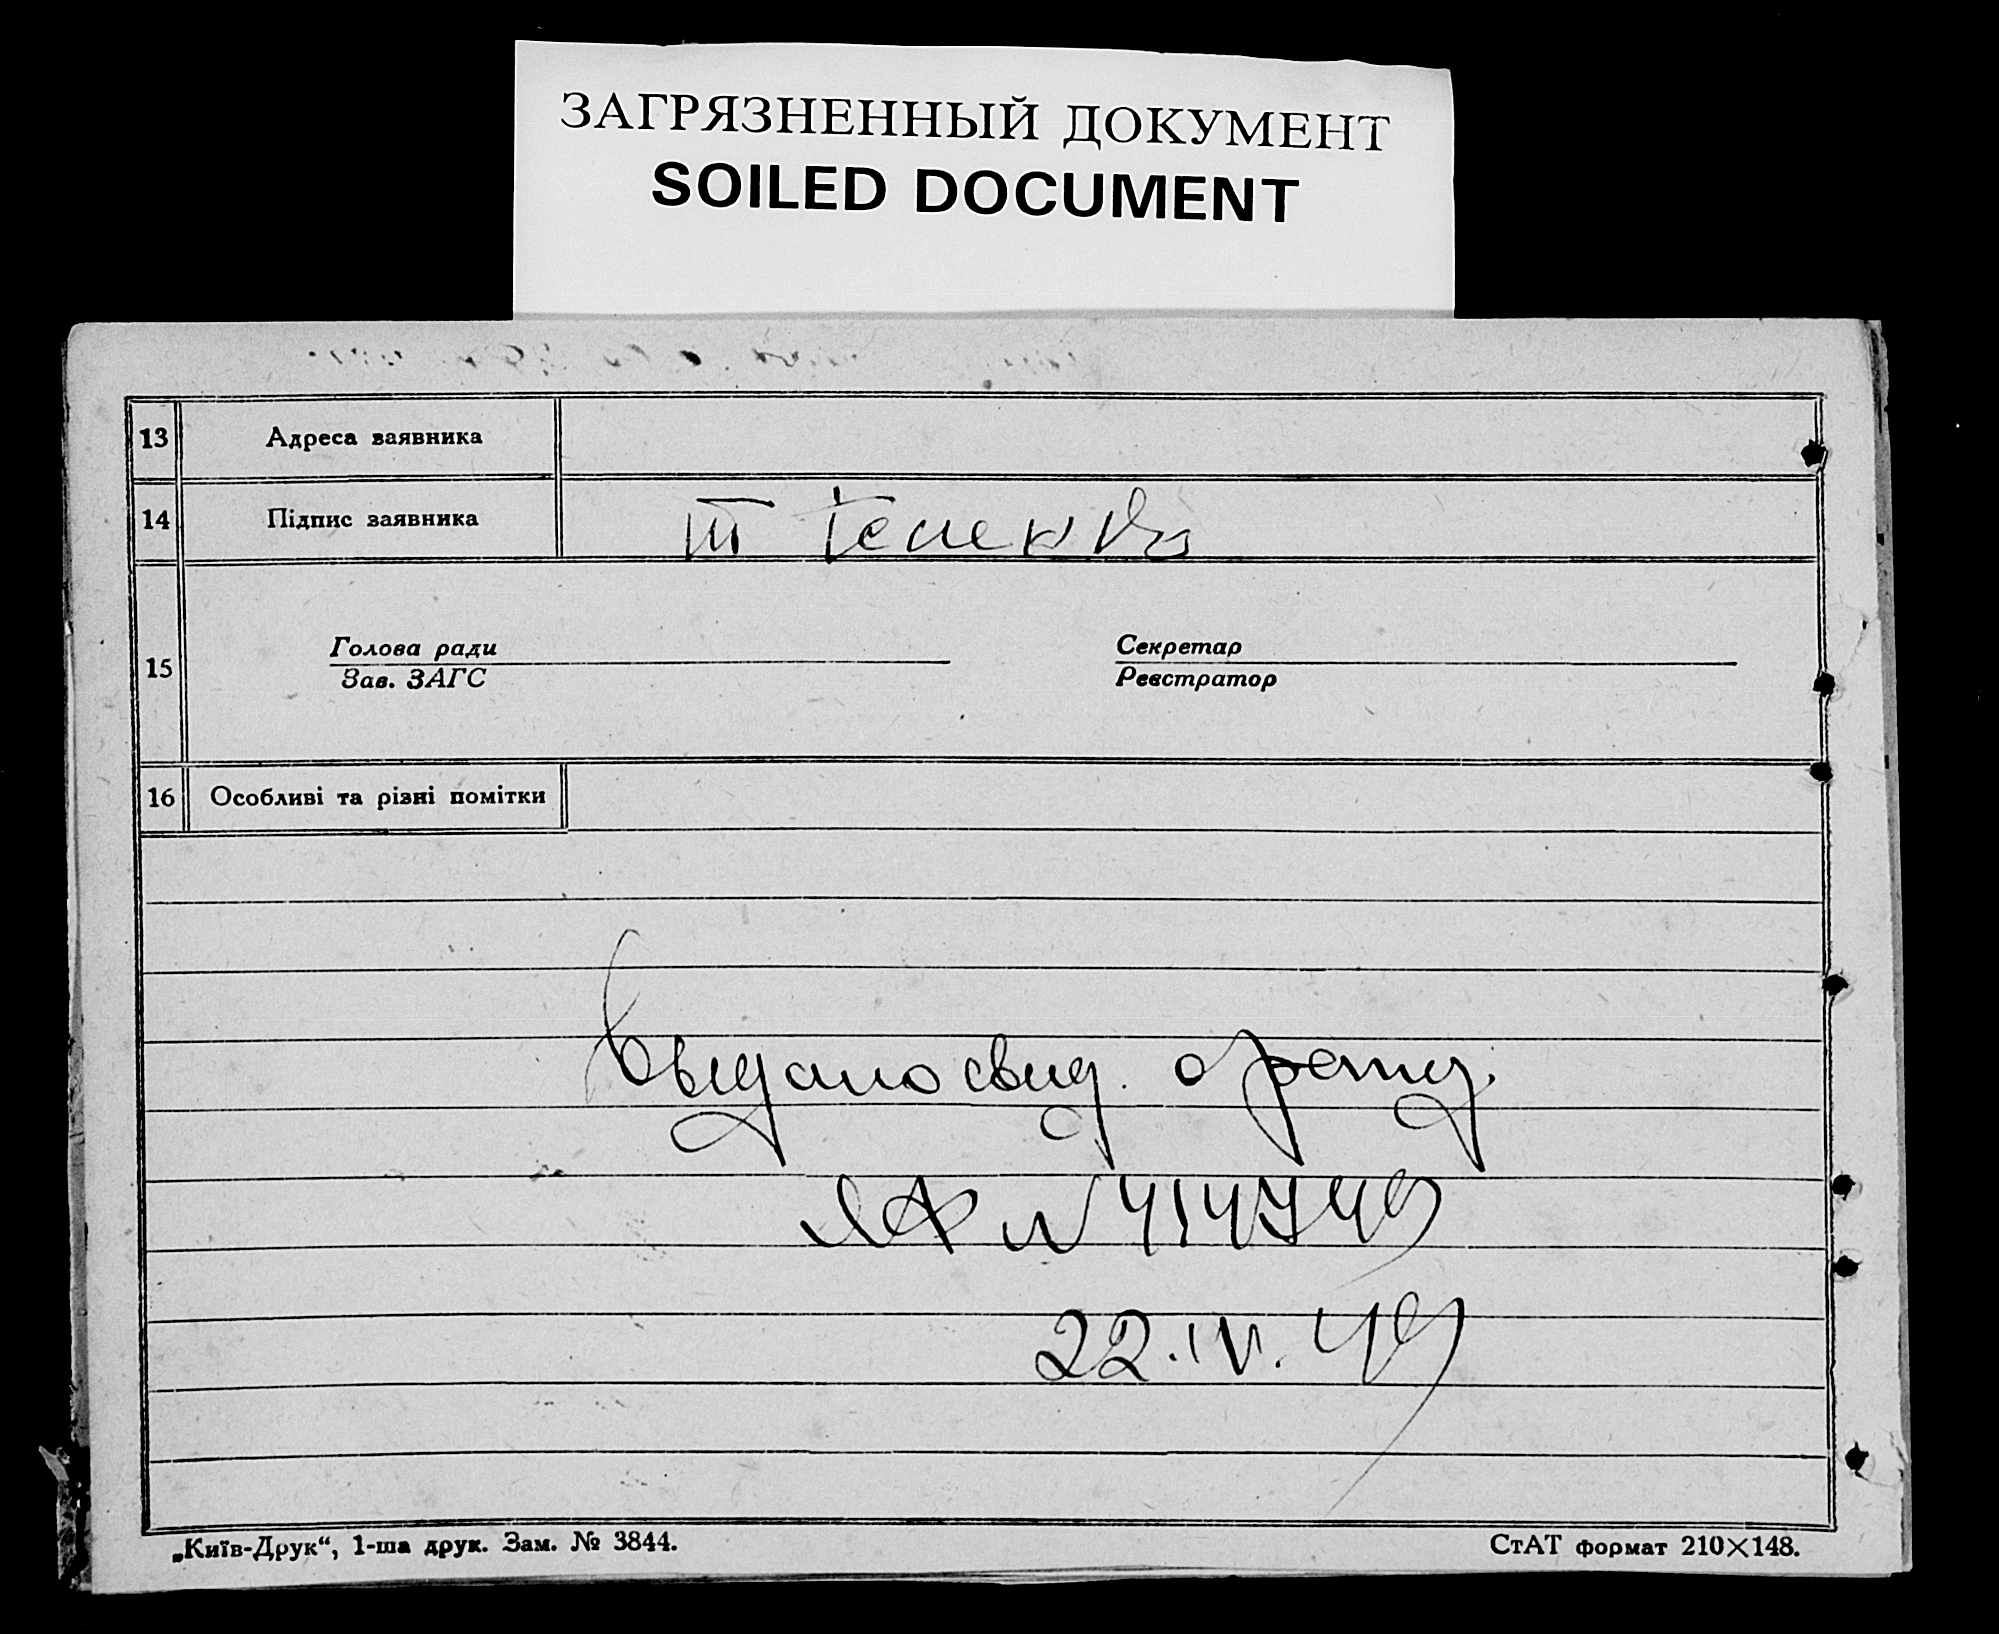 ЗАГРЯЗНЕННЫЙ ДОКУМЕНТ
SOILED DOCUMENT
13 Адреса заявника
14 Підпис заявника
15 Голова ради Секретар
Зав. ЗАГС Реєстратор
16 Особливі та різні помітки
Выдано свид. о рожд.
ЯФ № 414749
22.IV.49
„Київ-Друк“, 1-ша друк. Зам. № 3844. СтАТ формат 210×148.